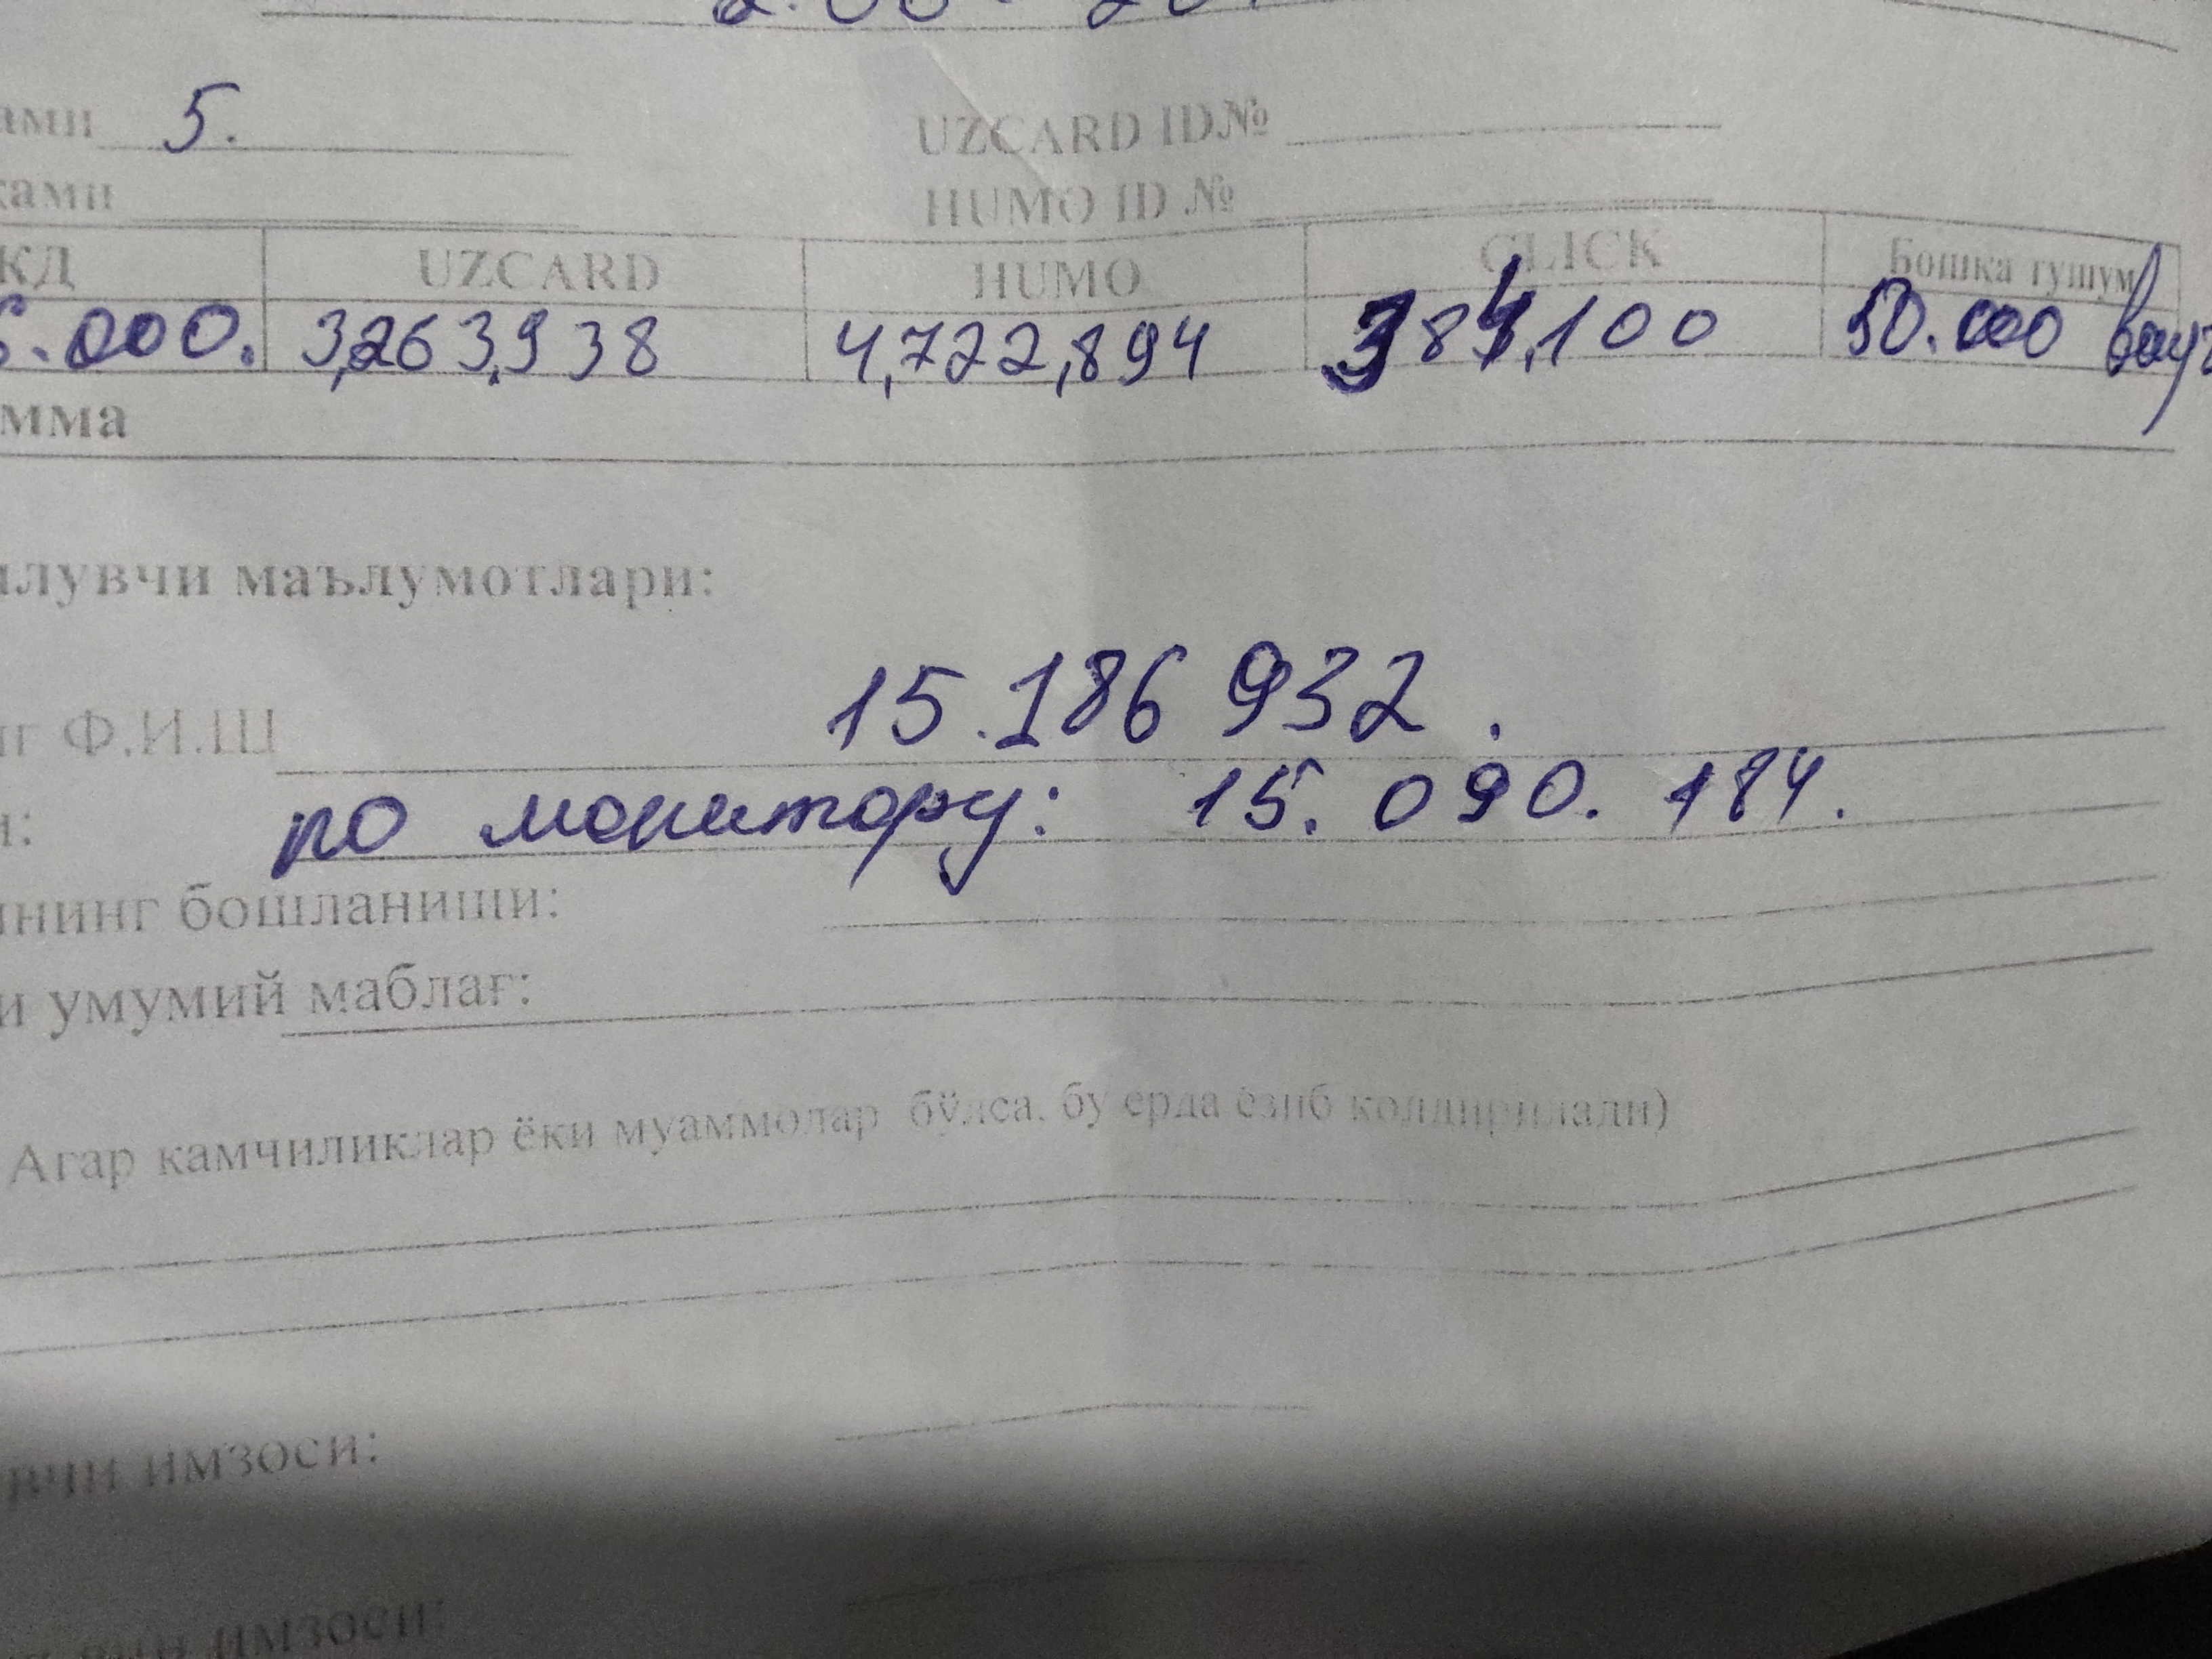 ами 5. UZCARD ID№
ками HUMO ID №
КД UZCARD HUMO CLICK Бошка тушум
6.000. 3,263,938 4,722,894 384,100 50.000
мма
илувчи маълумотлари:
нг Ф.И.Ш 15.186 932.
и: по монитору: 15.090.184.
ннинг бошланиши:
и умумий маблағ:
Агар камчиликлар ёки муаммолар бўлса, бу ерда ёзиб колдирилади)
вчи имзоси:
вчи имзоси: